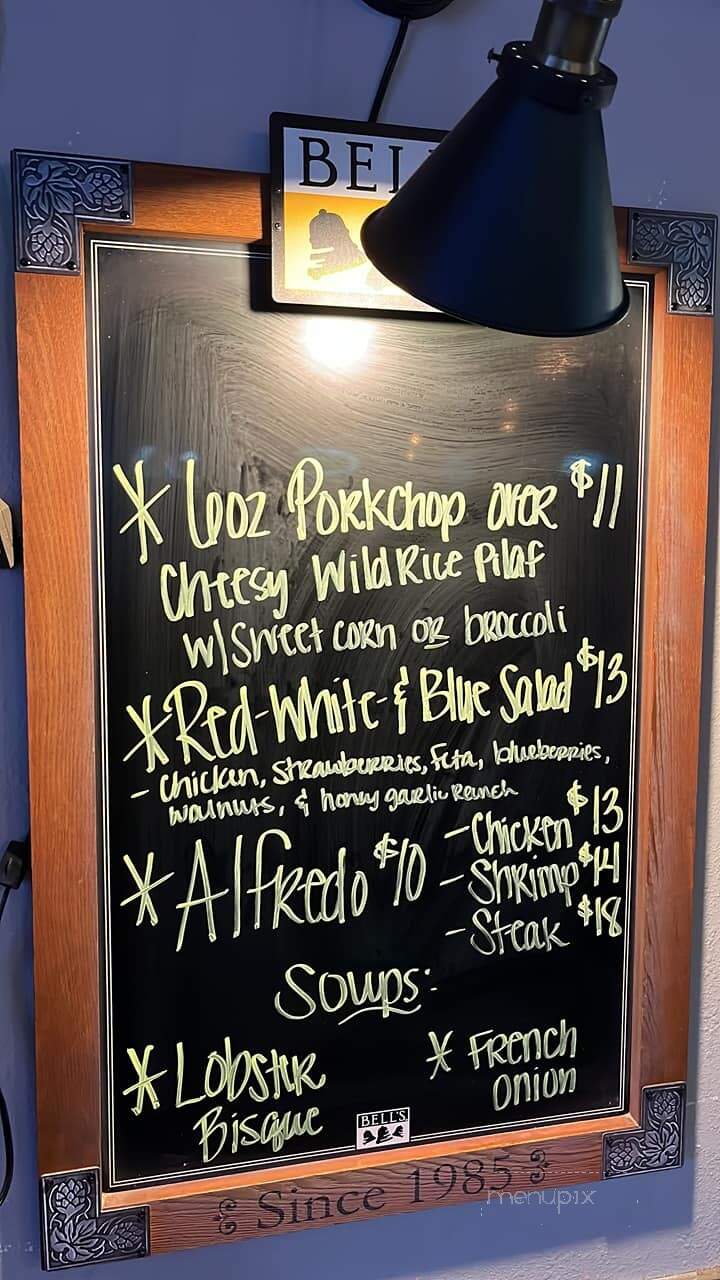 BELL
* 6oz Porkchop over $11
Cheesy Wild Rice Pilaf
w/Sweet corn or broccoli
* Red-White-& Blue Salad $13
- Chicken, Strawberries, Feta, blueberries,
walnuts, & honey garlic Ranch
* Alfredo $10
- Chicken $13
- Shrimp $14
- Steak $18
Soups:
* Lobster
Bisque
* French
Onion
BELL'S
Since 1985
menupix